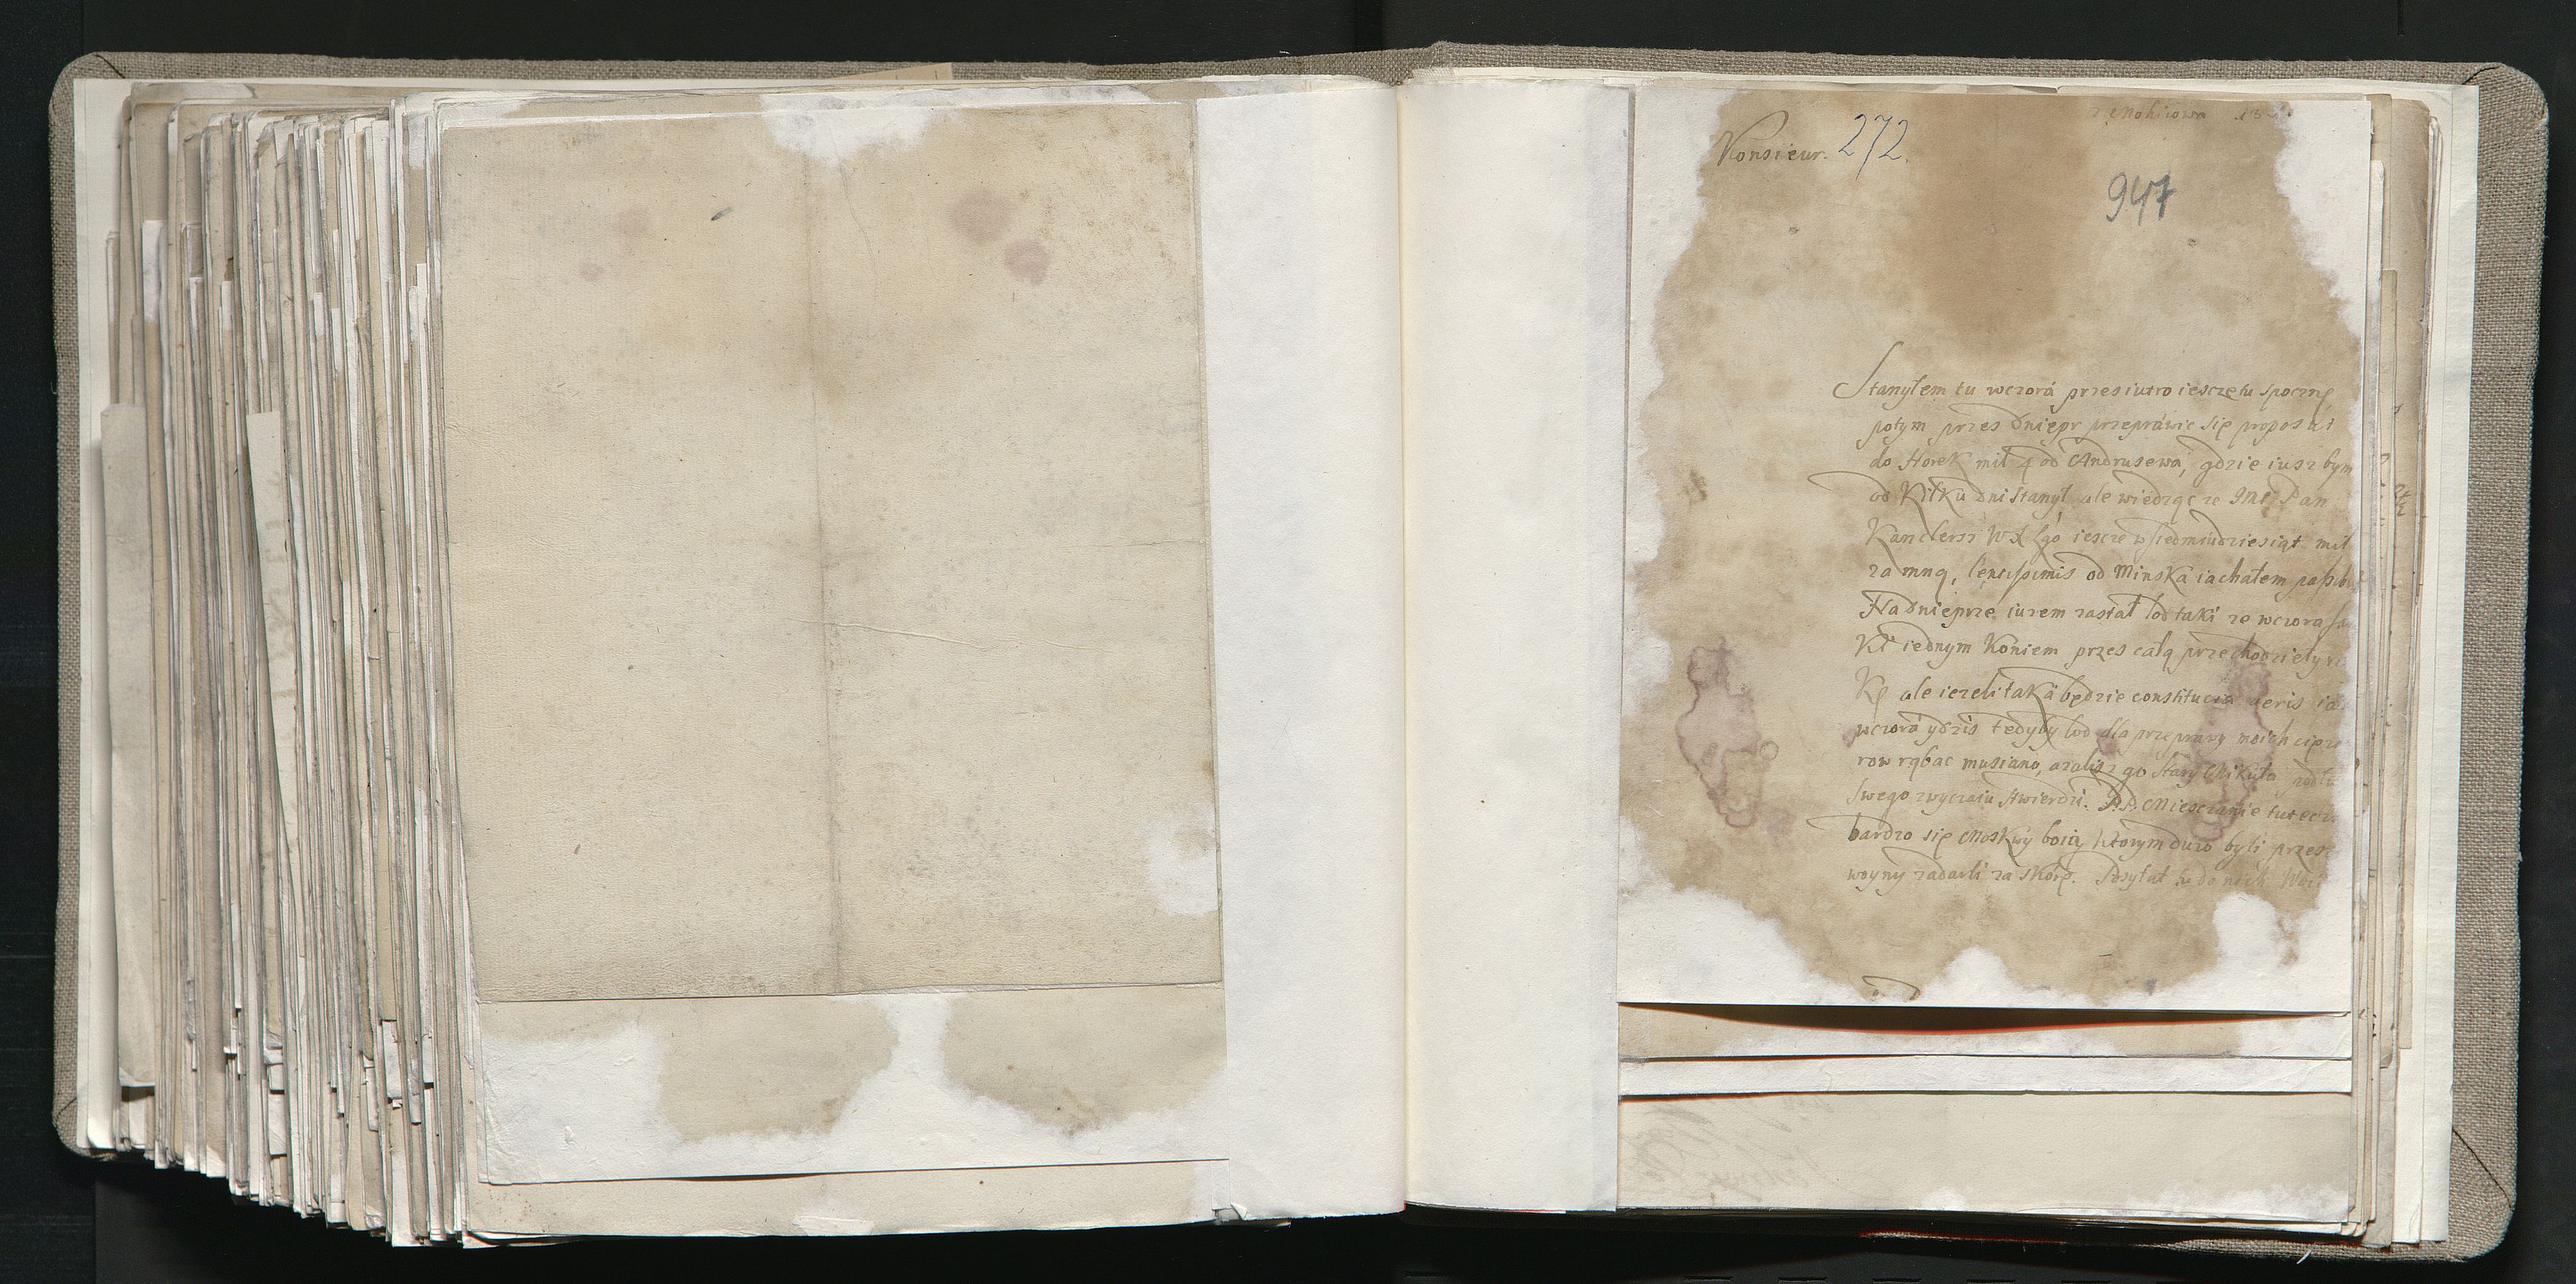 z Mohilowa 13
Monsieur. 272.
947
Stanąłem tu wczorá przesiutro iescze tu spoczne
potym przes dniepr przepráwie się propos
do Horek mil 4 od Andrusewá, gdzie iusz bym
od Kilku dni stanął ale wiedząc ze JMć Pan
Kanclerz WXL go iescze w siedmiudziesiąt mil
za mną, od Minska iachałem
Na dnieprze iuzem zastał lod taki ze wczora
iednym Koniem przes całą przechodzieły
ale iezeli taká będzie constitucia aeris
wczorá y dzis tedyby lod dla przeprawy moich
row rąbac musiano, azalisz go stary Mikuła
swego zwyczaiu stwierdzi. PP. Miesczanie
bardzo się Moskwy boią ktorym byli przes
woyny zadarli za skórę. Posyłał tu do nich